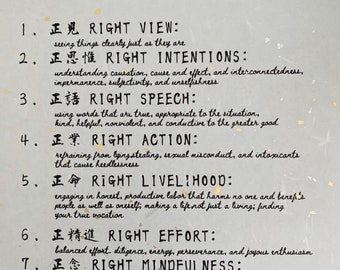 1. 正見 RIGHT VIEW:
seeing things clearly just as they are
2. 正思惟 RIGHT INTENTIONS:
understanding causation, cause and effect, and interconnectedness,
impermanence, subjectivity, and unselfishness
3. 正語 RIGHT SPEECH:
using words that are true, appropriate to the situation,
kind, helpful, nonviolent, and conductive to the greater good
4. 正業 RIGHT ACTION:
refraining from lying, stealing, sexual misconduct, and intoxicants
that cause heedlessness
5. 正命 RIGHT LIVELIHOOD:
engaging in honest, productive labor that harms no one and benefits
people as well as oneself; making a life not just a living; finding
your true vocation
6. 正精進 RIGHT EFFORT:
balanced effort. diligence, energy, perseverance, and joyous enthusiasm
7. 正念 RIGHT MINDFULNESS: